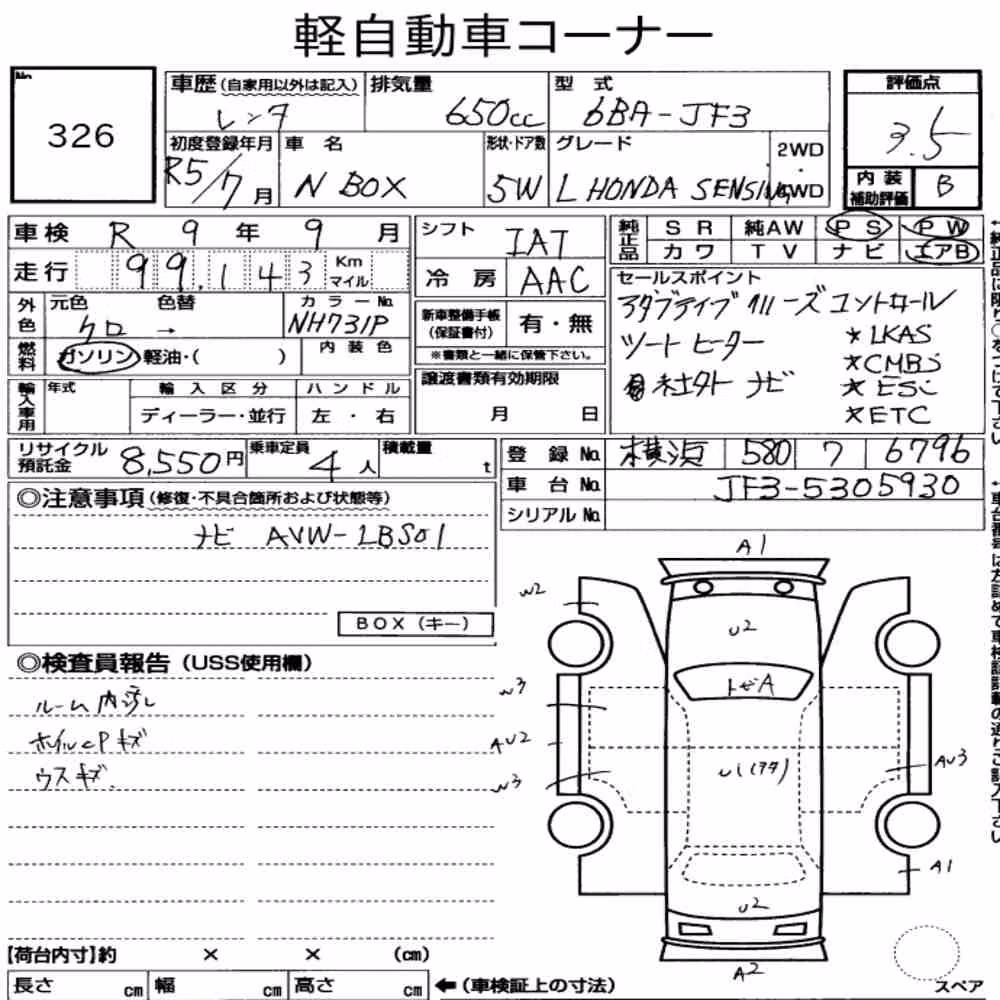 軽自動車コーナー
No. 326
車歴(自家用以外は記入) レンタ
排気量 650cc
型式 6BA-JF3
評価点 3.5
初度登録年月 R5/7月
車名 N BOX
形状・ドア数 5W
グレード L HONDA SENSING
2WD・4WD
内装補助評価 B
車検 R 9年 9月
走行 99,143 Km マイル
外色 元色 クロ → 色替
カラーNo. NH731P
燃料 ガソリン 軽油・( )
内装色
輸入車用 年式 輸入区分 ディーラー・並行 ハンドル 左・右
シフト IAT
冷房 AAC
新車整備手帳(保証書付) 有・無
※書類と一緒に保管下さい。
譲渡書類有効期限
月 日
純正品 SR 純AW PS PW
カワ TV ナビ エアB
セールスポイント
アダプティブ クルーズコントロール
シートヒーター ★LKAS
★CMBS
社外ナビ ★ESC
★ETC
リサイクル預託金 8,550円
乗車定員 4人
積載量 t
登録No. 横浜 580 ワ 6796
車台No. JF3-5305930
シリアルNo.
◎注意事項(修復・不具合箇所および状態等)
ナビ AVW-LBS01
BOX(キー)
◎検査員報告(USS使用欄)
ルーム内汚れ
ホイルcPキズ
ウスキズ.
A1
W2
U2
W3
トビA
AU2
U1(アタ)
AU3
W3
A1
U2
A2
スペア
【荷台内寸】約 × × (cm)
長さ cm 幅 cm 高さ cm ←(車検証上の寸法)